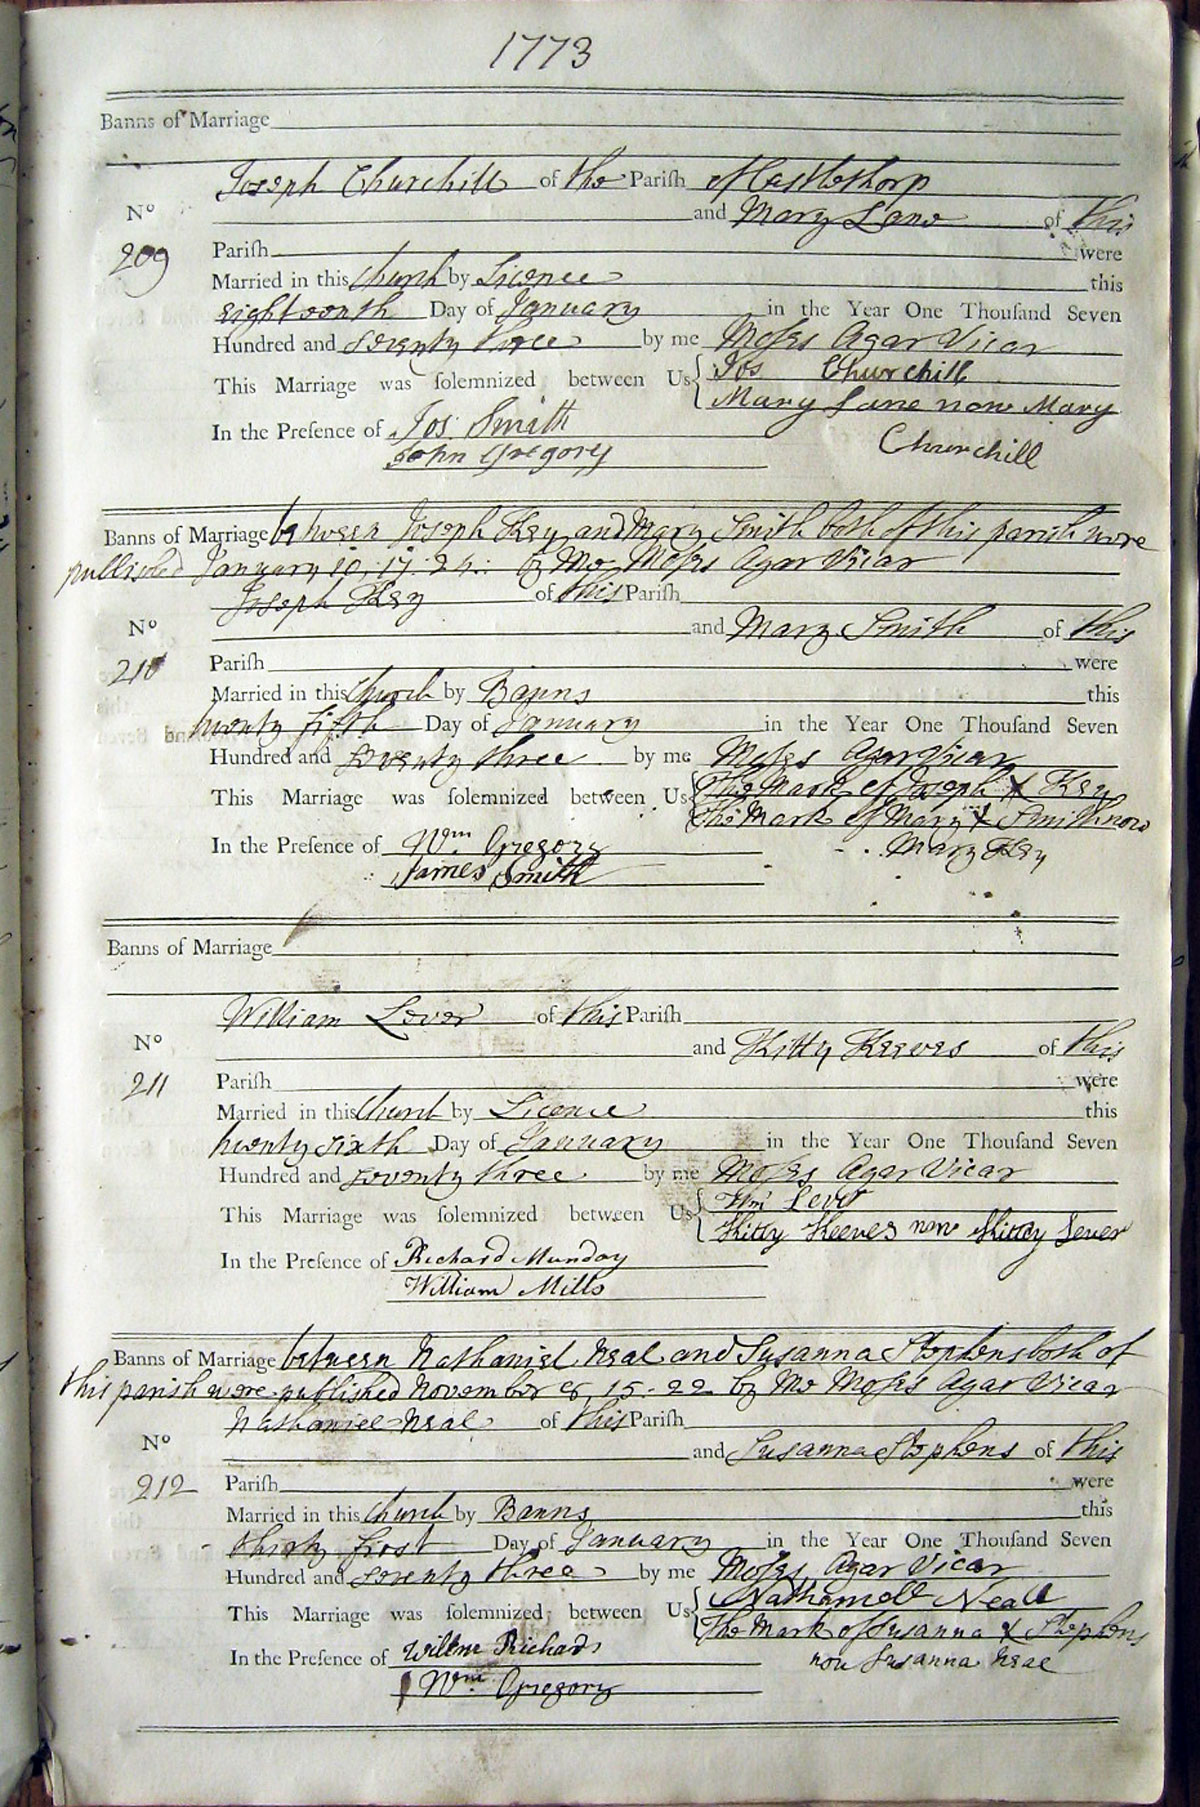 1773
Banns of Marriage
Joseph Churchill of the Parish of Casslethorp
No and Mary Lane of this
209 Parish were
Married in this Church by Licence this
eighteenth Day of January in the Year One Thousand Seven
Hundred and seventy three by me Moses Agar Vicar
This Marriage was solemnized between Us Jos Churchill
Mary Lane now Mary
Churchill
In the Presence of Jos: Smith
John Gregory
Banns of Marriage between Joseph Key and Mary Smith both of this parish were
published January 10. 17. 24. by Me Moses Agar Vicar
Joseph Key of this Parish
No and Mary Smith of this
210 Parish were
Married in this Church by Banns this
twenty fifth Day of January in the Year One Thousand Seven
Hundred and seventy three by me Moses Agar Vicar
This Marriage was solemnized between Us The Mark of Joseph X Key
The Mark of Mary X Smith now
Mary Key
In the Presence of Wm Gregory
James Smith
Banns of Marriage
William Lever of this Parish
No and Kitty Keeves of this
211 Parish were
Married in this Church by Licence this
twenty sixth Day of January in the Year One Thousand Seven
Hundred and seventy three by me Moses Agar Vicar
This Marriage was solemnized between Us Wm Lever
Kitty Keeves now Kitty Lever
In the Presence of Richard Munday
William Mills
Banns of Marriage between Nathaniel Neal and Susanna Stephens both of
this parish were published November 8. 15 - 22 by Me Moses Agar Vicar
Nathaniel Neal of this Parish
No and Susanna Stephens of this
212 Parish were
Married in this Church by Banns this
thirty first Day of January in the Year One Thousand Seven
Hundred and seventy three by me Moses Agar Vicar
This Marriage was solemnized between Us Nathaniell Neall
The Mark of Susanna X Stephens
now Susanna Neal
In the Presence of Richards
Wm Gregory